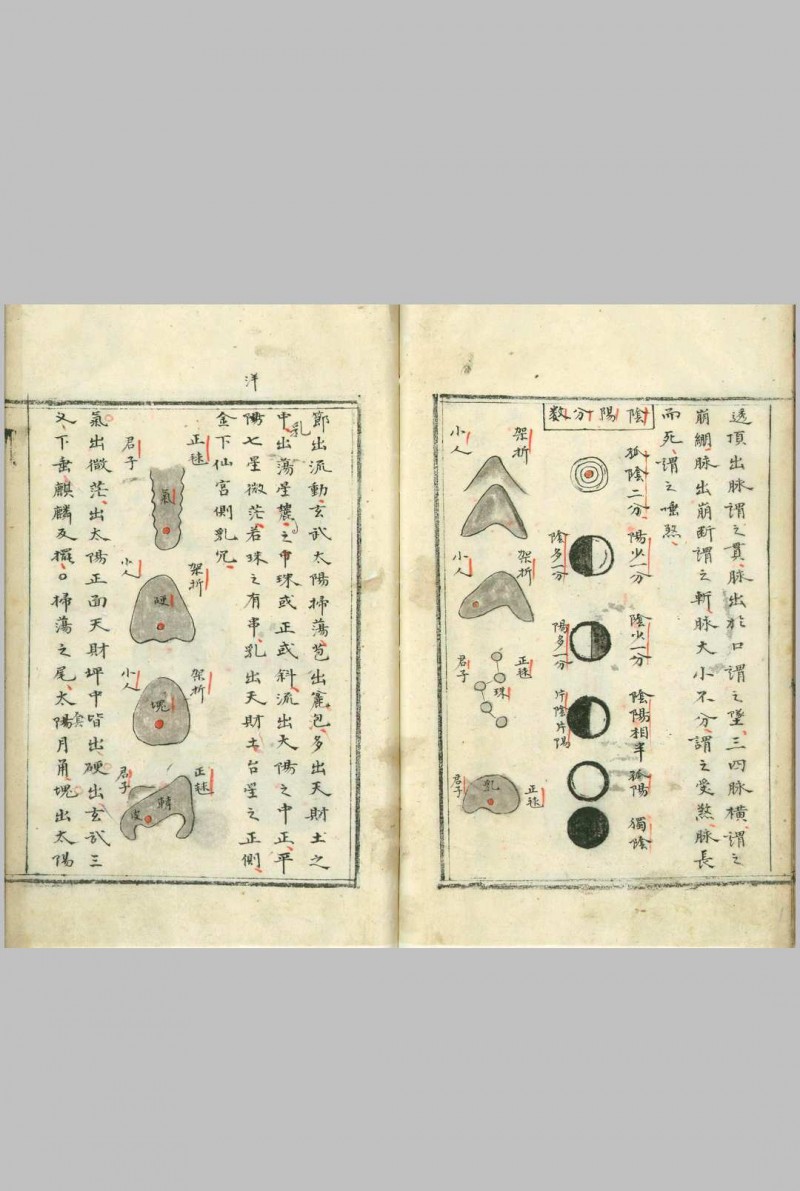 透頂出脉謂之貫、脉出於口謂之墜、三四脉橫、謂之
崩綳、脉出崩断謂之斬、脉大小不分、謂之受煞、脉長
而死、謂之
陰陽分数
孤陰二分
陽少一分
陰多一分
陰少一分
陽多一分
陰陽相半
片陰片陽
孤陽
獨陰
架折
小人
架折
小人
正毬
珠
君子
正毬
乳
君子
節出流動、玄武太陽掃蕩、苞出窩、泡、多出天財土之
中、乳出蕩星、之中、珠或正或斜、流出太陽之中正、平
陽七星微茫、若珠之有串、乳出天財土台星之正側、
金下仙宮側乳穴、
洋
正毬
氣
君子
架折
硬
小人
架折
塊
小人
正毬
轉
皮
君子
氣出微茫、出太陽正面天財坪中皆出、硬出玄武三
叉、下垂、麒麟及擺、口掃蕩之尾、太陰陽月角、塊出太陽